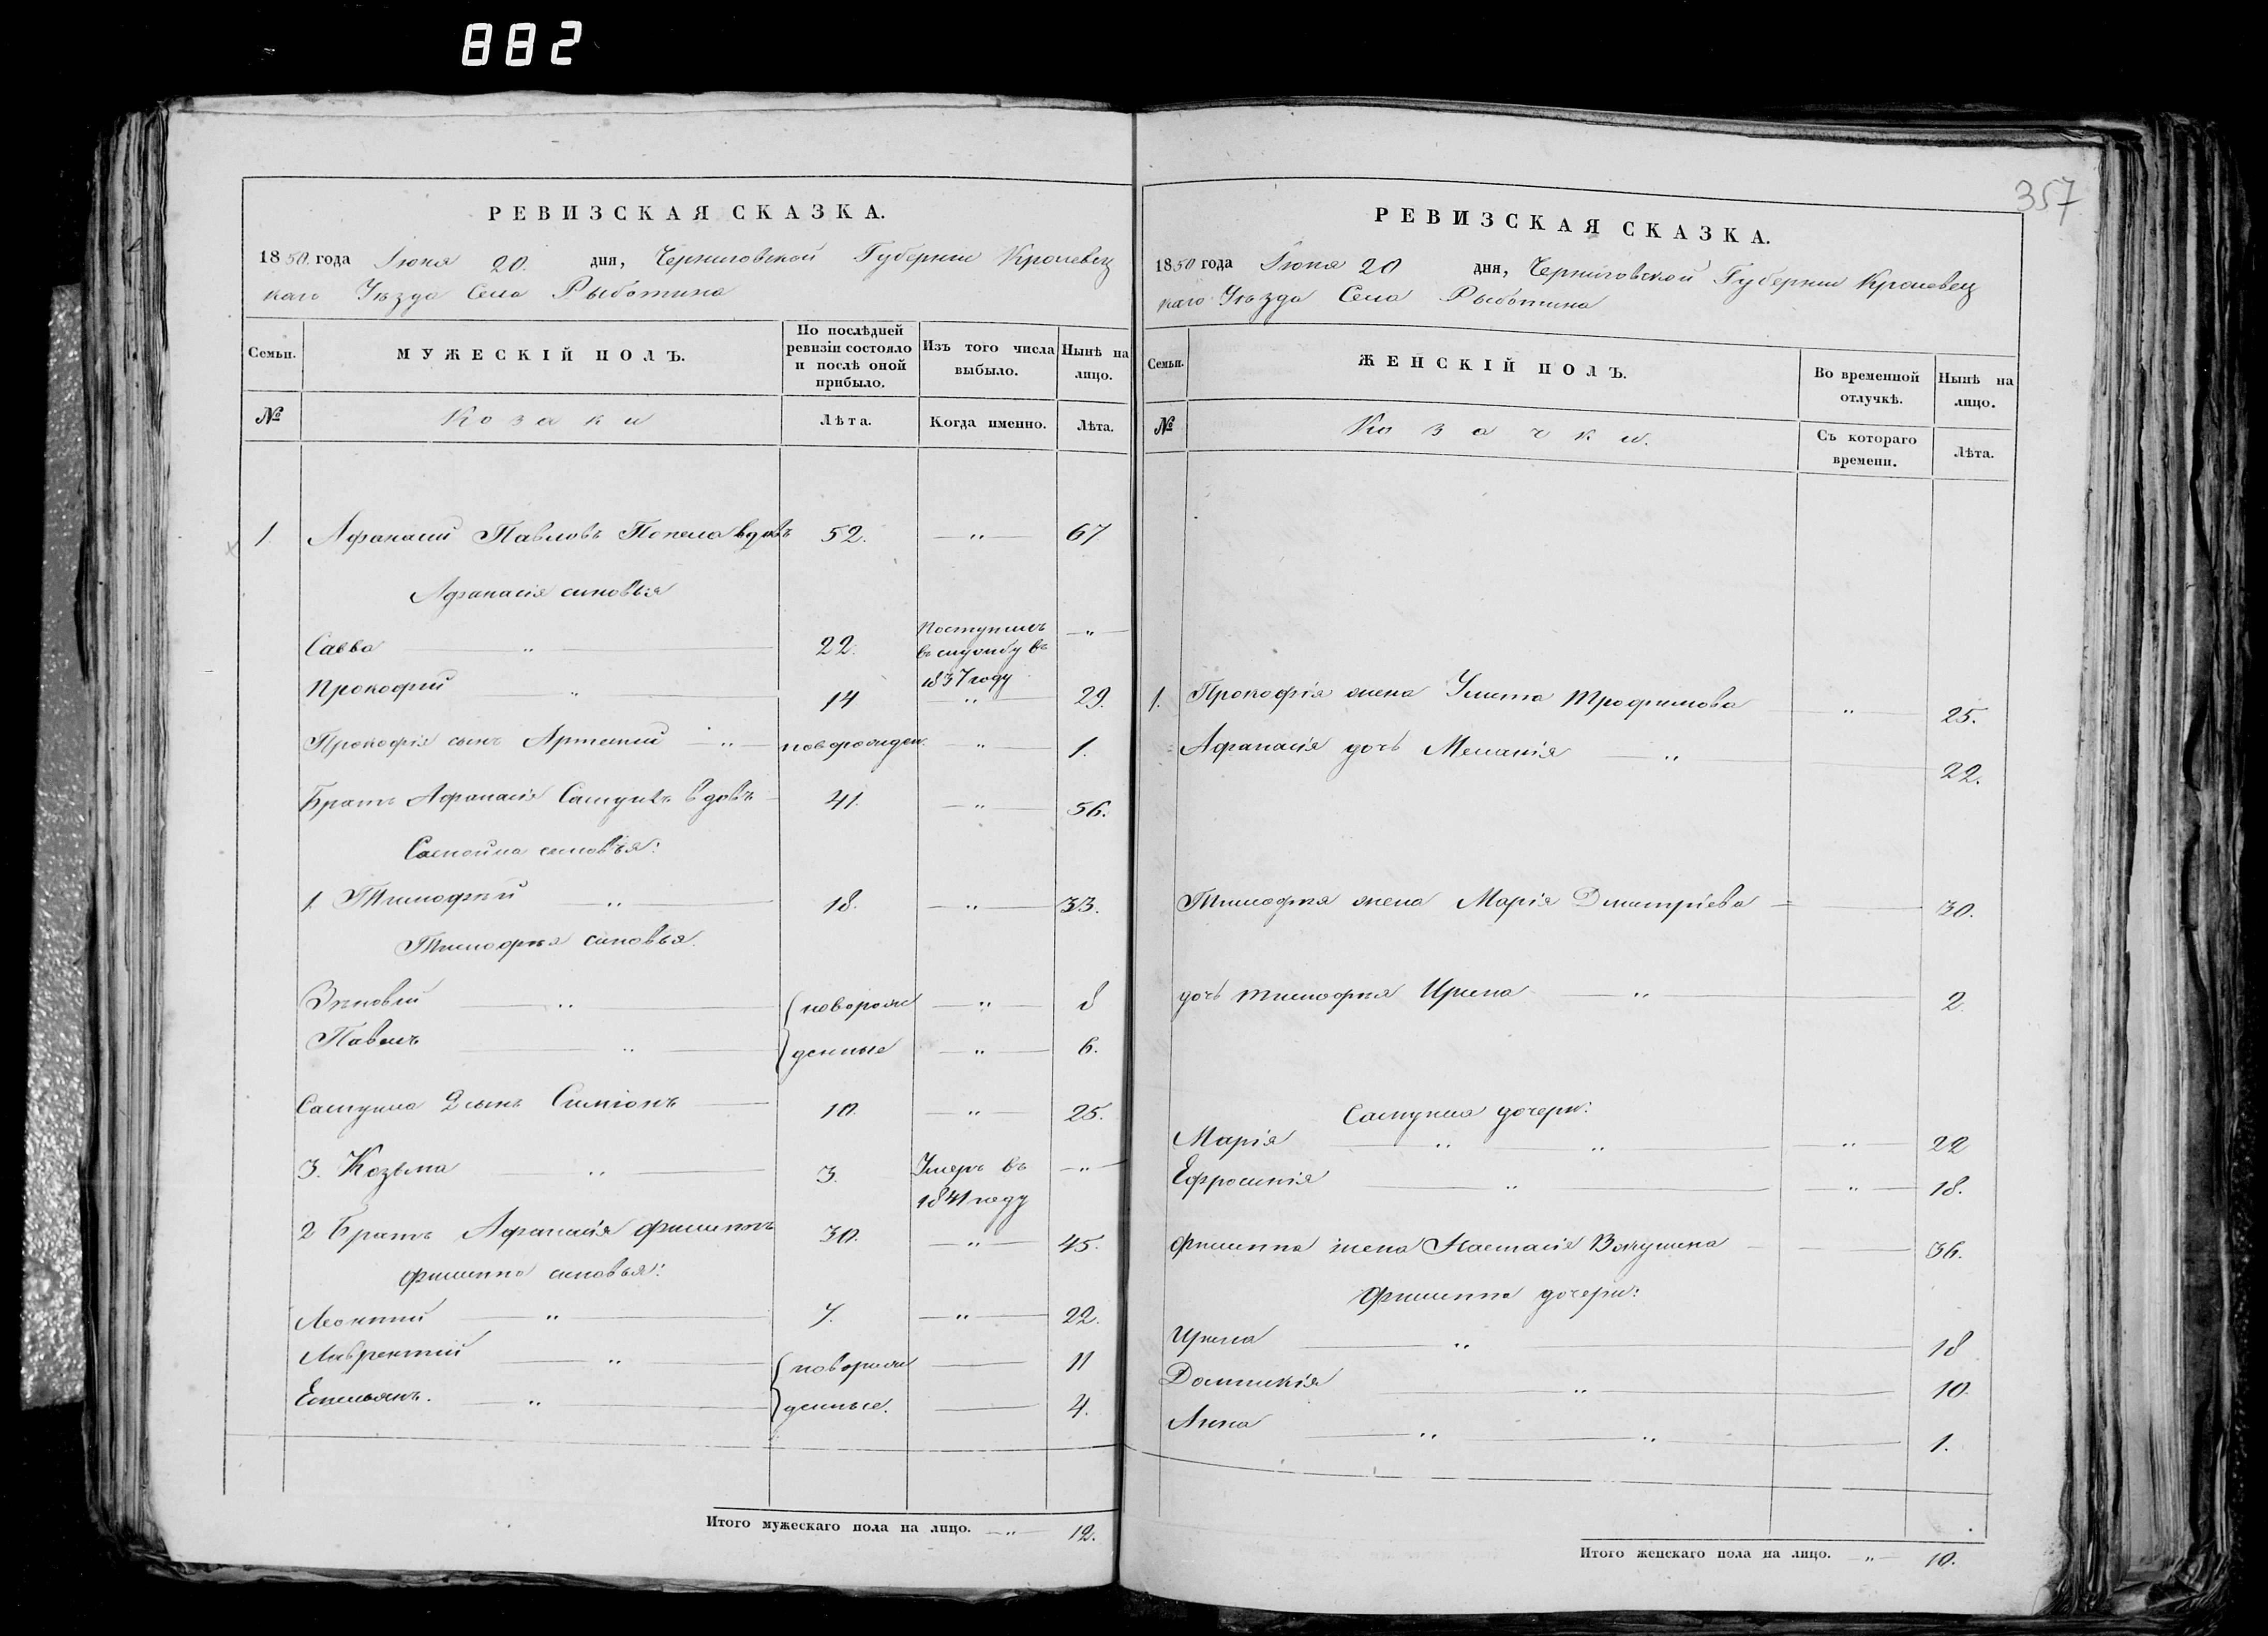 882
РЕВИЗСКАЯ СКАЗКА.
1850. года Іюня 20. дня, Черниговской Губерніи Кролевец
каго Уѣзда Села Рыботина
Семьи.
МУЖЕСКІЙ ПОЛЪ.
По послѣдней ревизіи состояло и послѣ оной прибыло.
Изъ того числа выбыло.
Нынѣ на лицо.
№
Козаки
Лѣта.
Когда именно.
Лѣта.
1 Афанасій Павловъ Попела вдовъ 52. —"— 67
Афанасія сыновья
Савва " 22. Поступилъ въ службу въ 1837 году —"—
Прокофій " 14 —"— 29.
Прокофія сынъ Артемій " новорожден. —"— 1.
Братъ Афанасія Самуилъ вдовъ 41. —"— 56.
Самойла сыновья:
1. Тимофей " 18. —"— 33.
Тимофея сыновья.
Зѣновій " новорож —"— 8
Павелъ " денные —"— 6.
Самуила 2 сынъ Симіонъ 10. —"— 25.
3. Козьма " 3. Умеръ въ 1841 году —"—
2 Братъ Афанасія Филиппъ 30. —"— 45.
Филиппа сыновья:
Леонтий " 7. —"— 22.
Лаврентий " новорож — 11
Емельянъ. " денные. — 4.
Итого мужескаго пола на лицо. —"— 12.
357
РЕВИЗСКАЯ СКАЗКА.
1850 года Іюня 20 дня, Черниговской Губерніи Кролевец
каго Уѣзда Села Рыботина
Семьи.
ЖЕНСКІЙ ПОЛЪ.
Во временной отлучкѣ.
Нынѣ на лицо.
№
Козачки.
Съ котораго времени.
Лѣта.
1. Прокофія жена Улита Трофимова " 25.
Афанасія дочь Меланія " 22.
Тимофея жена Марія Дмитріева 30.
дочь Тимофея Ирина " 2.
Самуила дочери:
Марія " " " 22
Ефросинія " " 18.
Филиппа жена Настасія 36.
Филиппа дочери:
Ирина " 18
Домникія " 10.
Анна " " 1.
Итого женскаго пола на лицо. " 10.